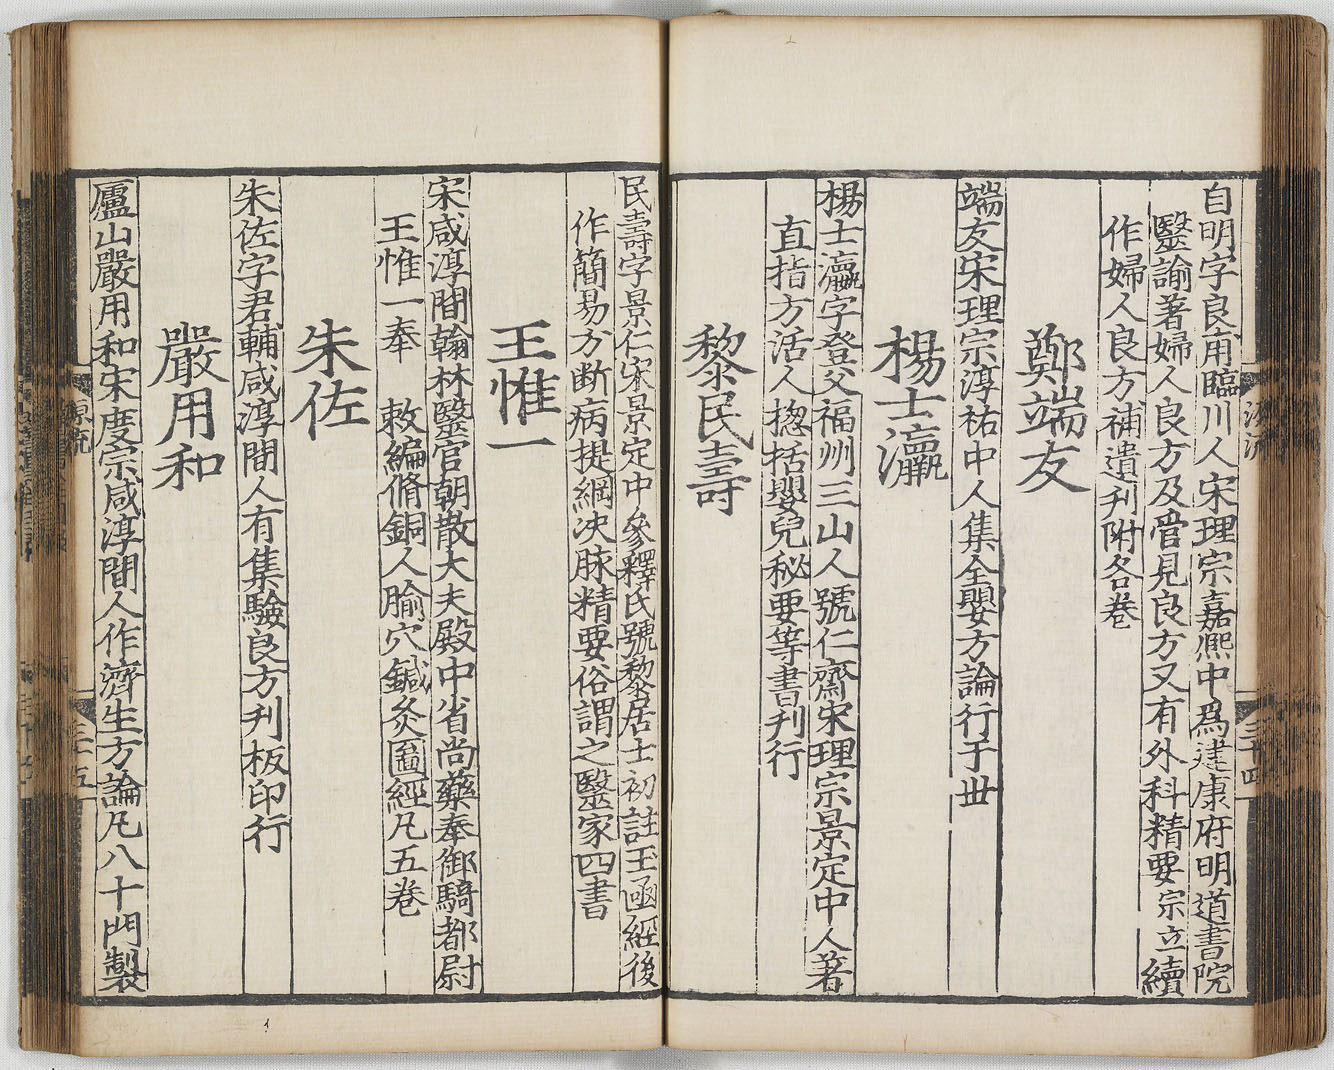 自明字良甫臨川人宋理宗嘉熈中爲建康府明道書院
毉諭著婦人良方及管見良方又有外科精要宗立續
作婦人良方補遺刋附各巻
鄭端友
端友宋理宗淳祐中人集全嬰方論行于丗
楊士瀛
楊士瀛字登父福州三山人號仁齋宋理宗景定中人著
直指方活人揔括嬰兒秘要等書刋行
黎民壽
民壽字景仁宋景定中參釋氏號黎居士初註玉凾經後
作簡易方断病提綱决脉精要俗謂之毉家四書
王惟一
宋咸淳間翰林毉官朝散大夫殿中省尚藥奉御騎都尉
王惟一奉 敕編脩銅人腧穴鍼灸圖經凡五巻
朱佐
朱佐字君輔咸淳間人有集驗良方刋板印行
嚴用和
廬山嚴用和宋度宗咸淳間人作濟生方論凡八十門製
源流
三十四
源流
三十五